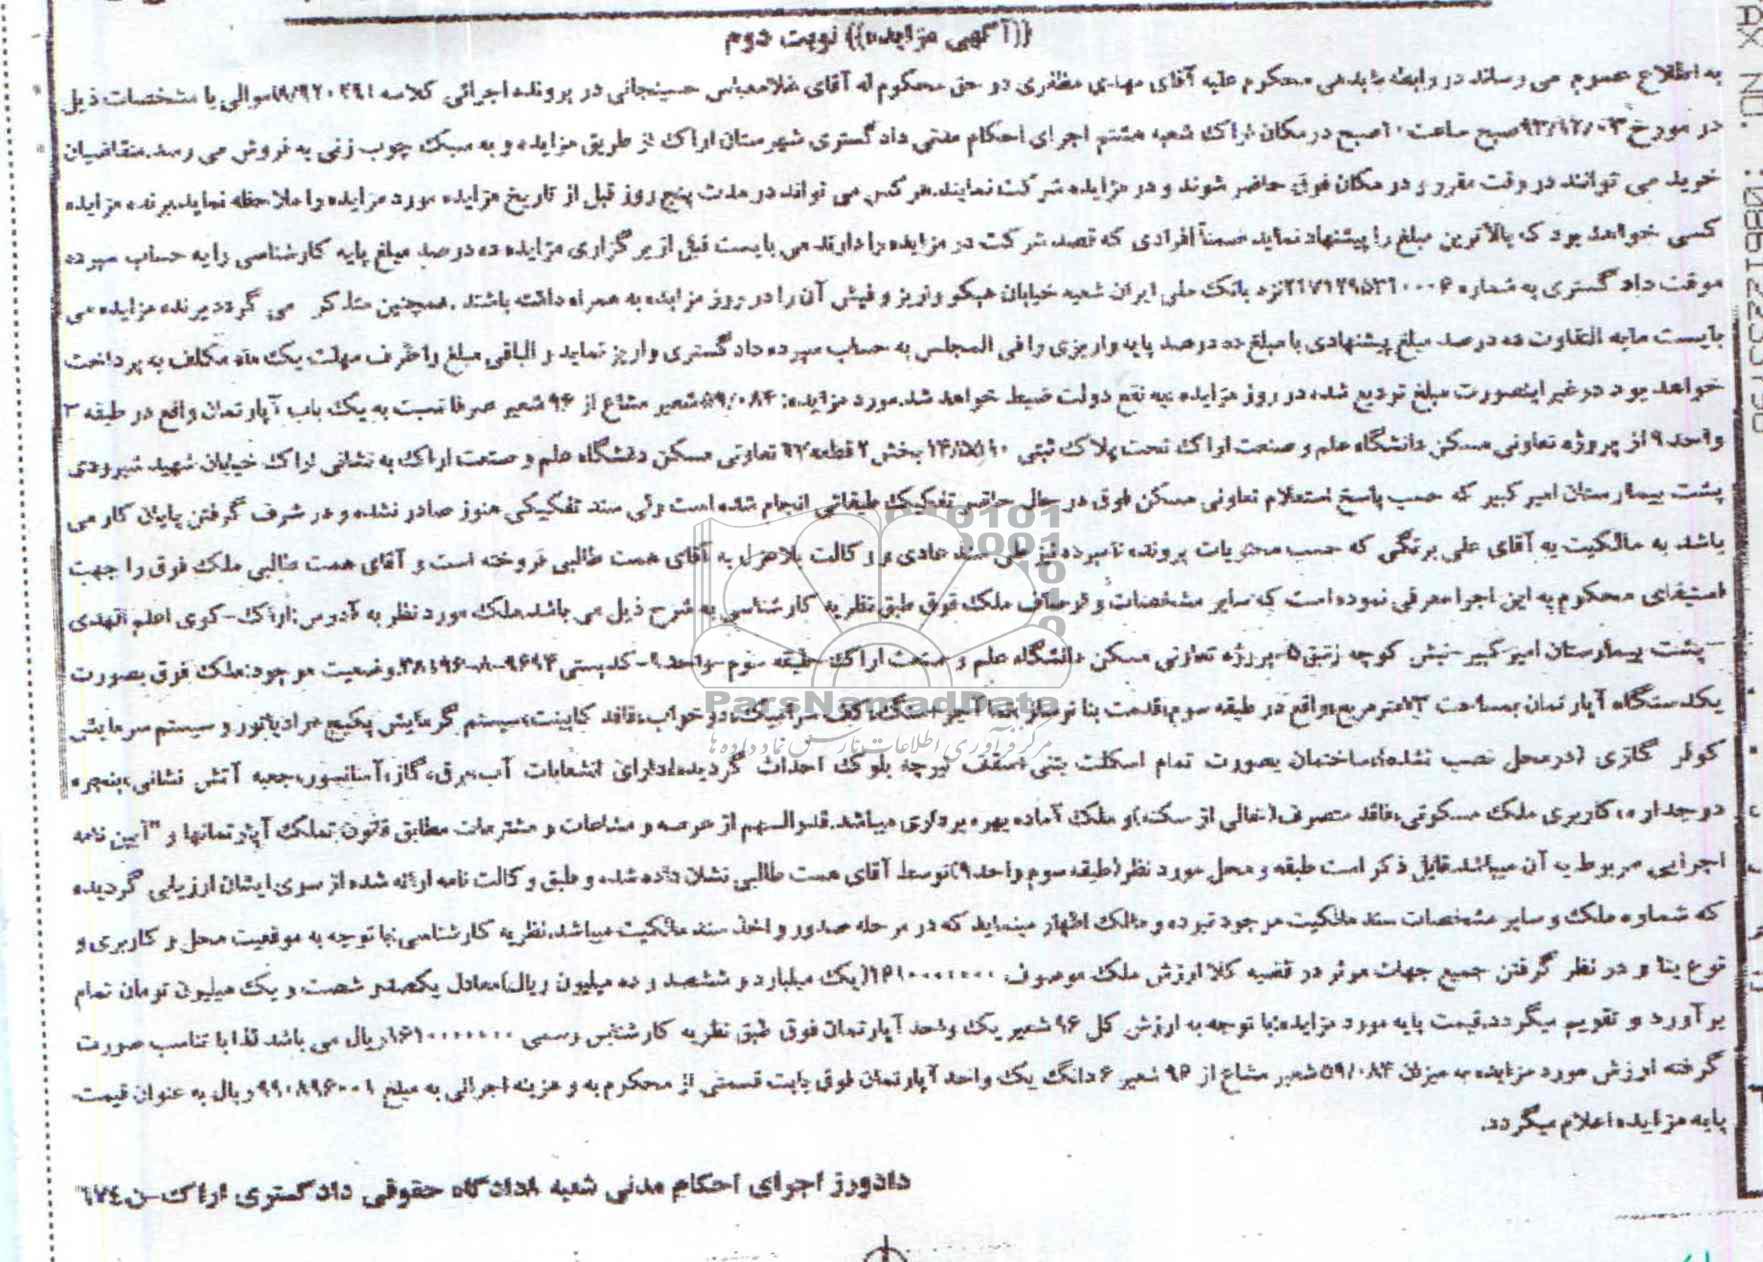 ((آگهی مزایده)) نوبت دوم
به اطلاع عموم می رساند در رابطه با بدهی محکوم علیه آقای مهدی مظفری در حق محکوم له آقای غلامعباس حسینجانی در پرونده اجرائی کلاسه اموالی با مشخصات ذیل
در مورخ ۹۳/۱۲/۰۳ صبح ساعت ۱۰ صبح در مکان اراک شعبه هشتم اجرای احکام مدنی دادگستری شهرستان اراک از طریق مزایده و به سبک چوب زنی به فروش می رسد.متقاضیان
خرید می توانند در وقت مقرر و در مکان فوق حاضر شوند و در مزایده شرکت نمایند.هرکس می تواند در مدت پنج روز قبل از تاریخ مزایده مورد مزایده را ملاحظه نماید.برنده مزایده
کسی خواهد بود که بالاترین مبلغ را پیشنهاد نماید ضمناً افرادی که قصد شرکت در مزایده را دارند می بایست قبل از برگزاری مزایده ده درصد مبلغ پایه کارشناسی را به حساب سپرده
موقت دادگستری به شماره ۲۱۷۱۲۹۵۳۱۰۰۰۶ نزد بانک ملی ایران شعبه خیابان هپکو واریز و فیش آن را در روز مزایده به همراه داشته باشند .همچنین متذکر می گردد برنده مزایده می
بایست مابه التفاوت ده درصد مبلغ پیشنهادی با مبلغ ده درصد پایه واریزی را فی المجلس به حساب سپرده دادگستری واریز نماید و الباقی مبلغ را ظرف مهلت یک ماه مکلف به پرداخت
خواهد بود در غیر اینصورت مبلغ تودیع شده در روز مزایده به نفع دولت ضبط خواهد شد.مورد مزایده: ۵۹/۰۸۴ شعیر مشاع از ۹۶ شعیر صرفا نسبت به یک باب آپارتمان واقع در طبقه ۳
واحد ۹ از پروژه تعاونی مسکن دانشگاه علم و صنعت اراک تحت پلاک ثبتی بخش ۲ قطعه تعاونی مسکن دانشگاه علم و صنعت اراک به نشانی اراک خیابان شهید شیرودی
پشت بیمارستان امیر کبیر که حسب پاسخ استعلام تعاونی مسکن فوق در حال حاضر تفکیک طبقاتی انجام شده است ولی سند تفکیکی هنوز صادر نشده و در شرف گرفتن پایان کار می
باشد به مالکیت به آقای علی برنگی که حسب محتویات پرونده نامبرده نیز طی سند عادی و وکالت بلاعزل به آقای همت طالبی فروخته است و آقای همت طالبی ملک فوق را جهت
استیفای محکوم به این اجرا معرفی نموده است که سایر مشخصات و اوصاف ملک فوق طبق نظریه کارشناسی به شرح ذیل می باشد.ملک مورد نظر به آدرس:اراک-کوی اعلم الهدی
-پشت بیمارستان امیرکبیر-نبش کوچه زنبق۵-پروژه تعاونی مسکن دانشگاه علم و صنعت اراک-طبقه سوم-واحد۹-کدپستی ۳۸۱۹۶-۸-۹۶۹۴.وضعیت موجود:ملک فوق بصورت
یکدستگاه آپارتمان بمساحت ۷۳مترمربع،واقع در طبقه سوم،قدمت بنا نوساز،نما آجر سنگ،کف سرامیک،دو خواب،فاقد کابینت،سیستم گرمایش پکیج و رادیاتور و سیستم سرمایش
کولر گازی (در محل نصب نشده)،ساختمان بصورت تمام اسکلت بتنی،سقف تیرچه بلوک احداث گردیده،دارای انشعابات آب،برق،گاز،آسانسور،جعبه آتش نشانی،پنجره
دوجداره،کاربری ملک مسکونی،فاقد متصرف(خالی از سکنه)و ملک آماده بهره برداری میباشد.قدرالسهم از عرصه و مشاعات و مشترکات مطابق قانون تملک آپارتمانها و "آیین نامه
اجرایی مربوط به آن میباشد.قابل ذکر است طبقه و محل مورد نظر(طبقه سوم واحد۹)توسط آقای همت طالبی نشان داده شده و طبق وکالت نامه ارائه شده از سوی ایشان ارزیابی گردیده
که شماره ملک و سایر مشخصات سند مالکیت موجود نبرده و مالک اظهار مینماید که در مرحله صدور و اخذ سند مالکیت میباشد.نظریه کارشناسی:با توجه به موقعیت محل و کاربری و
نوع بنا و در نظر گرفتن جمیع جهات موثر در قضیه کلا ارزش ملک موصوف ۱۶۱۰۰۰۰۰۰۰(یک میلیارد و ششصد و ده میلیون ریال)معادل یکصد و شصت و یک میلیون تومان تمام
برآورد و تقویم میگردد.قیمت پایه مورد مزایده:با توجه به ارزش کل ۹۶ شعیر یک واحد آپارتمان فوق طبق نظریه کارشناس رسمی ۱۶۱۰۰۰۰۰۰۰ریال می باشد لذا با تناسب صورت
گرفته ارزش مورد مزایده به میزان ۵۹/۰۸۴ شعیر مشاع از ۹۶ شعیر ۶ دانگ یک واحد آپارتمان فوق بابت قسمتی از محکوم به و هزینه اجرائی به مبلغ ۹۹۰۸۹۶۰۰۱ریال به عنوان قیمت
پایه مزایده اعلام میگردد.
دادورز اجرای احکام مدنی شعبه ۸دادگاه حقوقی دادگستری اراک-ن
ParsNamadData
مرکز فرآوری اطلاعات پارس نماد داده ها